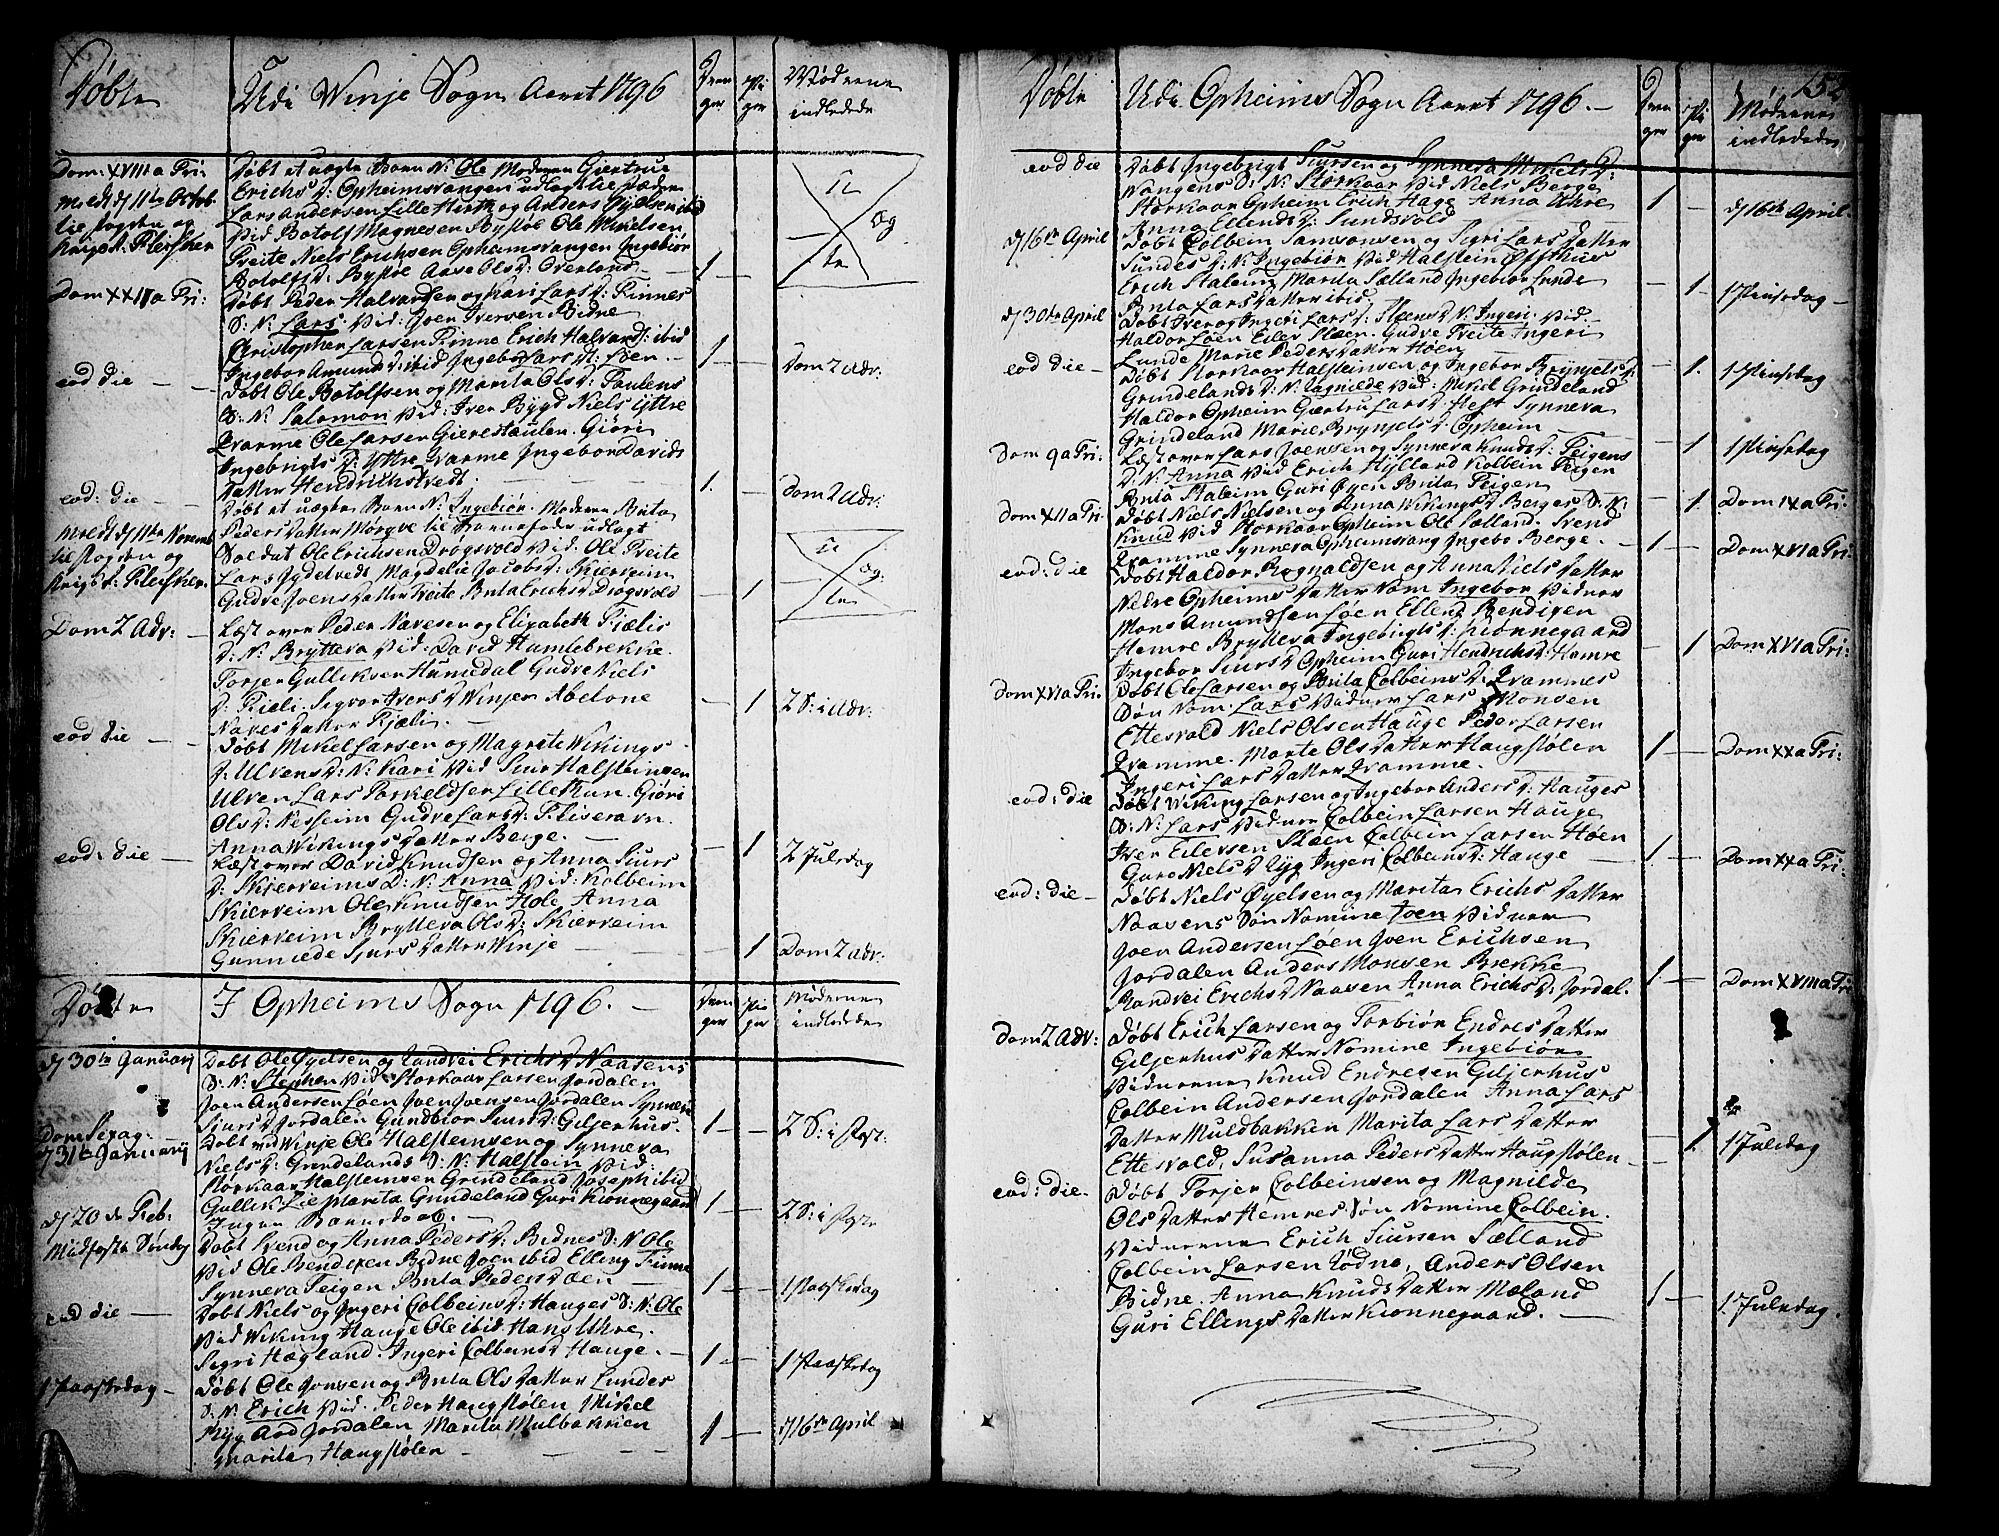 Døbte
Udi Winje Sogn Aaret 1796
Dren
ger
Pi
ger
Mødrene
indledede
Dom: XVIII a Tri:
Døbt et uægte Barn N: Ole Moderen Giertrue
Erichs D: Opheimsvangen udlagt til Fader
Lars Andersen Lille Herth og Anders Øyelsen ibid
Vid Botolf Magnesen Bystøl Ole Mikelsen
Treite Niels Erichsen Opheimsvangen Ingebiør
Botolfs D: Bystøl Aase Ols D: Overland
1
og
Dom XXII a Tri:
Døbt Peder Halvardsen og Kari Lars D: Finnes
S: N: Lars. Vid: Joen Iversen Bidne
Christopher Larsen Finne Erich Halvards: ibid
Ingebor Amunds D: ibid Ingebor Lars D: Løen
1
Dom 2 Adv:
eod die
Døbt Ole Botolfsen og Marita Ols D: Taulens
S: N: Salomon Vid: Iver Bygd Niels Yttre
Qvarme Ole Larsen Gierestaulen. Giøri
Ingebrigts D: Yttre Qvarme Ingebor Davids
Datter Hendrichstvedt
1.
Dom 2 Adv:
eod: die
Døbt et uægte Barn N: Ingebiør. Moderen Brita
Peders Datter Mørqve til Barnefader udlagt
Soldat Ole Erichsen Drøgsvold Vid: Ole Treite
Lars Jydetvedt Magdelie Jacobs D: Skierveim
Gudve Joens Datter Treite Brita Erichs D Drøgsvold
1
og
Dom 2 Adv:
Læst over Peder Navesen og Elizabeth Fiælis
D: N: Brytteva Vid: David Humlebrekke
Torjer Gulliksen Humedal Gudve Niels
D: Fiæli. Sigvor Ivers D Winje Abelone
Naves Datter Fiæli
1
2 S: i Adv:
eod die
Døbt Mikel Larsen og Magrete Wikings
D: Ulvens D: N: Kari Vid Siur Halsteinsen
Ulven Lars Torkeldsen Lille Thun. Giøri
Ols D: Nesheim Gudve Lars D: Fliseravn.
Anna Wikings Datter Berge.
1
2 Juledag
eod: die
Læst over David Knudsen og Anna Siurs
D: Skierveims D: N: Anna Vid: Kolbeim
Skierveim Ole Knudsen Hole Anna
Skierveim Brytteva Ols D: Skierveim
Gunnilde Sjurs Datter Winje
1
Dom 2 adv:
Døbte
I Opheims Sogn 1796.
Dren
ger
Pi
ger
Møderne
indledede
d 30te Januarij
Døbt Ole Øyelsen og Randvei Erichs D Naasens
S: N: Stephen Vid Storkaar Larsen Jordalen
Joen Andersen Løen Joen Joensen Jordalen Synneve
Sjurs D Jordalen Gundbiør Siurs D: Giljerhus.
1
2 S: i Post:
Dom Sexag
d 31te Januarij
Døbt ved Winje Ole Halsteinsen og Synneva
Niels D: Grindelands S: N: Halstein Vid:
Storkaar Halsteinsen Grindeland Joseph ibid
Gullik Lie Marita Grindeland Guri Kionnegaard
1
2 S: i Post
d 20 de Feb.
Midfaste Søndag
Døbt Svend og Anna Peders D: Bidnes S: N: Ole
Vid Ole Bendixen Bidne Joen ibid Elling Finne
Synneva Teigen Brita Peders Døen
1
1 Paaskedag
eod die
Døbt Niels og Ingeri Colbeins D: Hauges S: N: Ole
Vid Wiking Hauge Ole ibid Hans Uhre.
Sigri Hægland. Ingeri Colbeins D Hauge.
1
1 Paaskedag
1 Paaskedag
Døbt Ole Jonsen og Brita Ols Datter Lundes
S: N: Erich Vid. Peder Haugstølen Mikel
Myg Ard Jordalen Marita Mulbakken
Marita Haugstølen
1
d 16de April
152
Døbte
Udi Opheims Sogn Aaret 1796.
Dren
ger
Pi
ger
Mødrene
indledede
eod die
Døbt Ingebrigt Siursen og Synneva Mikels D:
Wangens S: N: Storkaar Vid Niels Berge
Storkaar Opheim Erich Hage Anna Uhre
Anna Ellends D: Sundsvold
1
d 16de April
d 16de April
Døbt Colbein Samsonsen og Sigri Lars Datter
Sundes D: N: Ingebiør Vid Halstein Ofsthus
Erich Staleim Marita Sælland Ingebor Lunde
Brita Lars Datter ibid
1
1 Pinsedag
d 30te April
Døbt Iver og Ingeri Lars D: Sløens D: N: Ingeri. Vid.
Haldor Løen Eilev Sløen. Gudve Treite Ingeri
Lunde Marie Peders Datter Høen
1.
1 Pinsedag
eod die
Døbt Storkaar Halsteinsen og Ingebor Brynjels D:
Grindelands D: N: Vid: Mikel Grindeland
Haldor Opheim Giertru Lars D: Heft Synneva
Grindeland Marie Brynjels D: Opheim
1
1 Pinsedag
Dom 9 a Tri:
Læst over Lars Joensen og Synneva Knuds D: Teigens
D: N: Anna Vid Erich Hylland Kolbein Teigen
Brita Staleim Guri Øyen Brita Teigen
1.
Dom IX a Tri:
Dom XII a Tri:
Døbt Niels Nielsen og Anna Wikings D Berges S: N:
Knud Vid Storkaar Opheim Ole Sælland. Svend
Qvamme Synneva Opheimsvang Ingebor Berge.
1
Dom XVI a Tri:
eod: die
Døbt Haldor Rognaldsen og Anna Niels Datter
Nedre Opheims Datter Nom Ingebor Vidner
Mons Amundsen Løen Ellend Bendigen
Hemre Brytteva Ingebrigts D: Kiønnegaard
Ingebor Siurs D Opheim Guri Hendrichs D: Hemre
1
Dom XVI a Tri:
Dom XVI a Tri:
Døbt Ole Larsen og Brita Colbeins D: Qvammes
Søn Nom. Lars Vidner Lars Monsen
Ettesvold Niels Olsen Hauge Peder Larsen
Qvamme. Marte Ols Datter Haugstølen
Ingeri Lars Datter Qvamme.
1
Dom XX a Tri:
eod: die
Døbt Wiking Larsen og Ingebor Anders D: Hauges
S: N: Lars Vidner Colbein Larsen Hauge
Iver Eilevsen Sløen Colbein Larsen Høen
Guro Niels D Myg Ingeri Colbeins D: Hauge
1.
Dom XX a Tri:
eod: die
Døbt Niels Øyelsen og Marita Erichs Datter
Naasens Søn Nomine Joen Vidner
Joen Andersen Løen Joen Erichsen
Jordalen Anders Monsen Brekke
Randvei Erichs D Naasen Anna Erichs D: Jordal.
1
Dom XVIII a Tri
Dom 2 Adv:
Døbt Erich Larsen og Torbiør Endres Datter
Giljerhus Datter Nomine Ingebiør
Vidnerne Knud Endresen Giljerhus
Colbein Andersen Jordalen Anna Lars
Datter Muldbakken Marita Lars Datter
Ettesvold, Susanna Peders Datter Haugstølen
1.
1 Juledag
eod: die.
Døbt Torjer Colbeinsen og Magnilde
Ols Datter Hemres Søn Nomine Colbein.
Vidnerne Erich Siursen Sælland
Colbein Larsen Lødno, Anders Olsen
Bidne. Anna Knuds Datter Mæland
Guri Ellings Datter Kionnegaard.
1
1 Juledag.